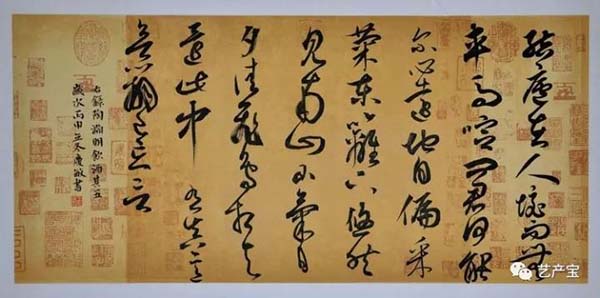 結廬在人境而無
車馬喧問君何能
尔心遠地自偏采
菊東籬下悠然
見南山山氣日
夕佳飛鳥相與
還此中有真意
欲辨已忘言
右錄陶淵明飲酒其五
歲次丙申冬書
艺产宝